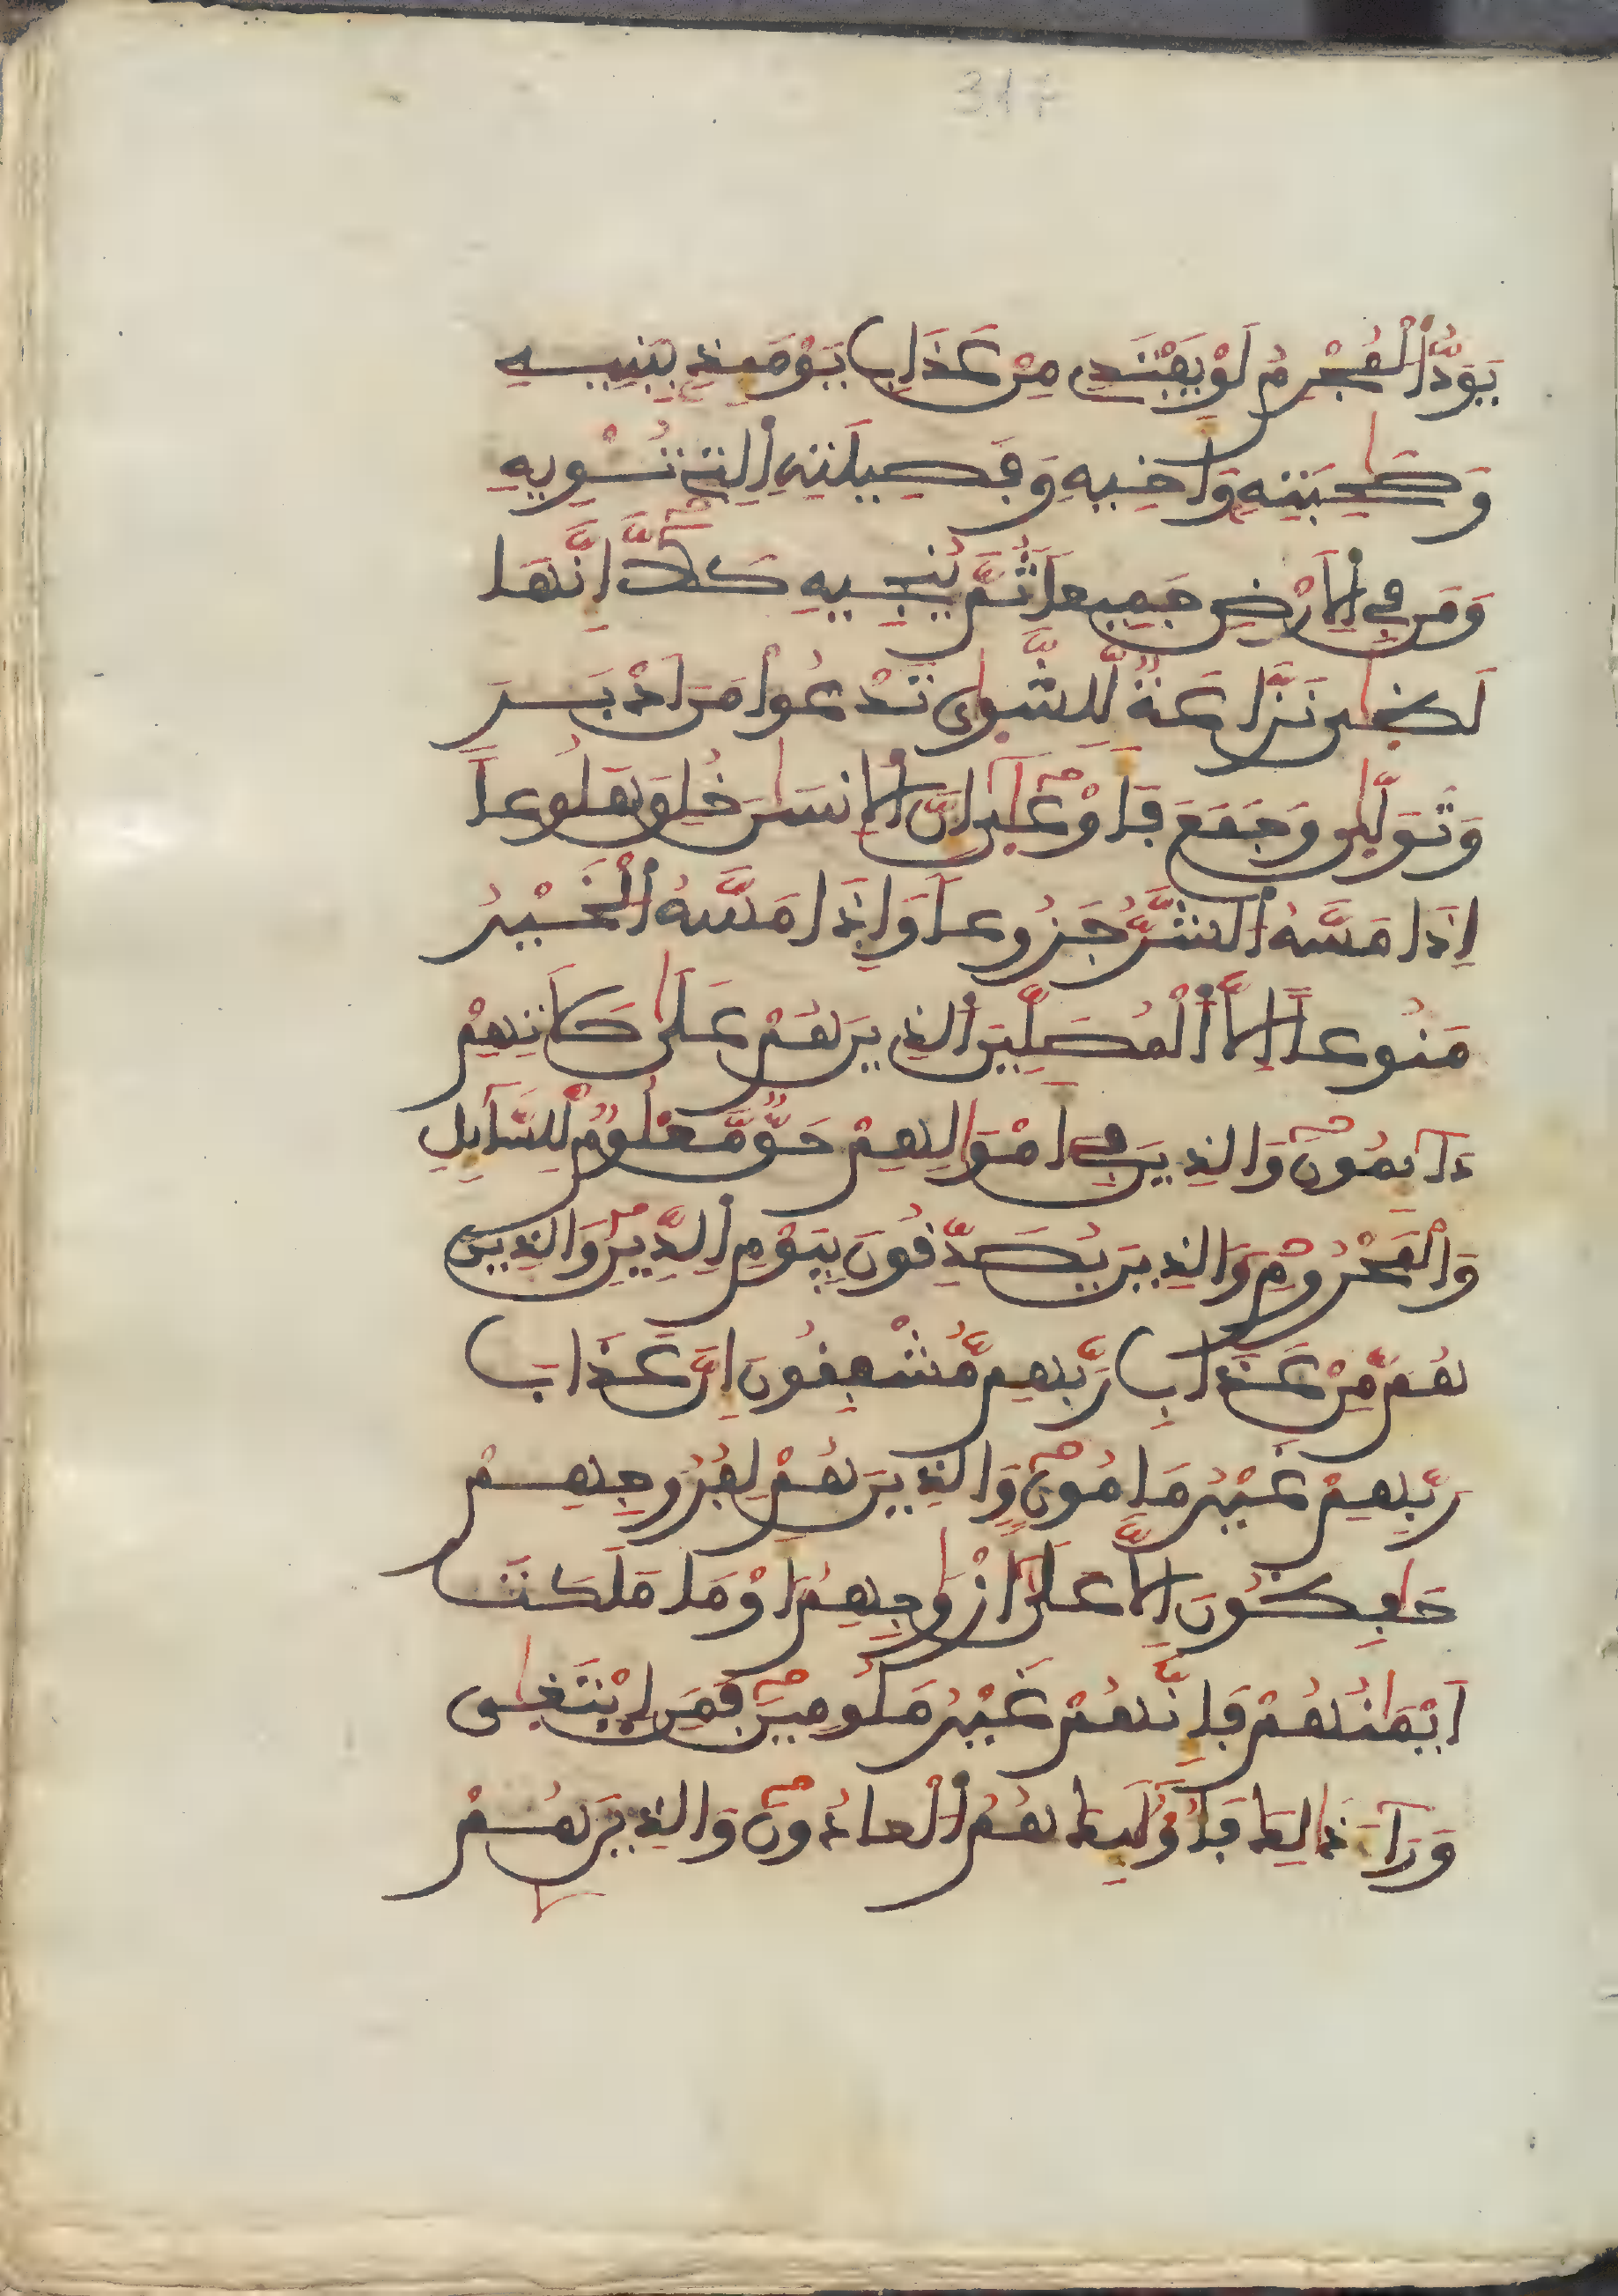 317
يَوَدُّ اُ۬لْمُجْرِمُ لَوْ يَفْتَدِے مِنْ عَذَابِ يَوْمَئِذٍ بِبَنِيهِ
وَصَٰحِبَتِهِۦ وَأَخِيهِ وَفَصِيلَتِهِ اِ۬لتِے تُـْٔوِيهِ
وَمَن فِے اِ۬لَارْضِ جَمِيعاً ثُمَّ يُنجِيهِ كَلَّآ إِنَّهَا
لَظ۪ىٰ نَزَّاعَةٌ لِّلشَّو۪ىٰ تَدْعُواْ مَنَ اَدْبَرَ
وَتَوَلّ۪ىٰ وَجَمَعَ فَأَوْع۪ىٰٓ إِنَّ اَ۬لِانسَٰنَ خُلِقَ هَلُوعاً
اِذَا مَسَّهُ اُ۬لشَّرُّ جَزُوعاً وَإِذَا مَسَّهُ اُ۬لْخَيْرُ
مَنُوعاً اِلَّا اَ۬لْمُصَلِّينَ اَ۬لذِينَ هُمْ عَلَىٰ صَلَاتِهِمْ
دَآئِمُونَ وَالذِينَ فِےٓ أَمْوَٰلِهِمْ حَقٌّ مَّعْلُومٌ لِّلسَّآئِلِ
وَالْمَحْرُومِ وَالذِينَ يُصَدِّقُونَ بِيَوْمِ اِ۬لدِّينِ وَالذِينَ
هُم مِّنْ عَذَابِ رَبِّهِم مُّشْفِقُونَ إِنَّ عَذَابَ
رَبِّهِمْ غَيْرُ مَامُونٍ وَالذِينَ هُمْ لِفُرُوجِهِمْ
حَٰفِظُونَ إِلَّا عَلَىٰٓ أَزْوَٰجِهِمُۥٓ أَوْ مَا مَلَكَتَ
اَيْمَٰنُهُمْ فَإِنَّهُمْ غَيْرُ مَلُومِينَ فَمَنِ اِ۪بْتَغ۪ىٰ
وَرَآءَ ذَٰلِكَ فَأُوْلَٰٓئِكَ هُمُ اُ۬لْعَادُونَ وَالذِينَ هُمْ